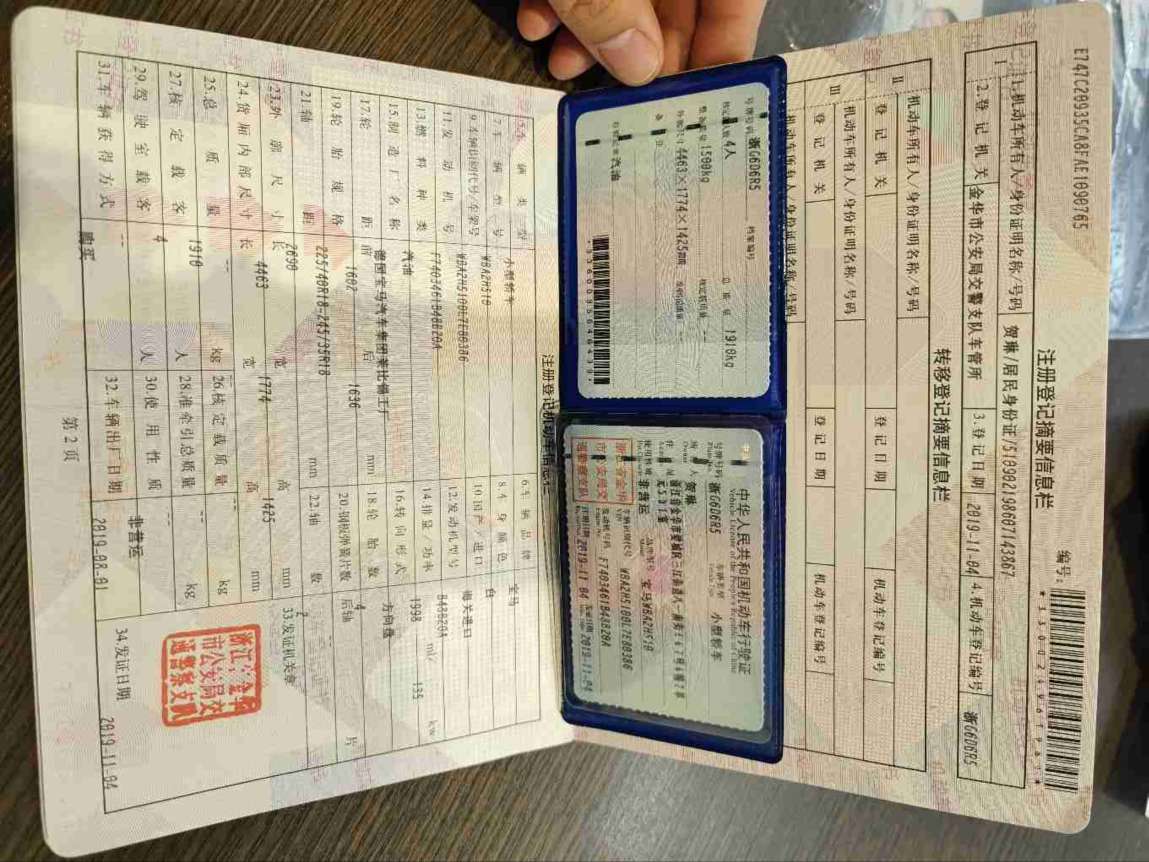 E747C20935CA8FAE1090765
编号:
*330024961796*
注册登记摘要信息栏
Ⅰ 1.机动车所有人/身份证明名称/号码 贺琳/居民身份证/510902198607143867
2.登记机关 金华市公安局交警支队车管所 3.登记日期 2019-11-04 4.机动车登记编号 浙G6D6R5
转移登记摘要信息栏
Ⅱ 机动车所有人/身份证明名称/号码
登记机关 登记日期 机动车登记编号
Ⅲ 机动车所有人/身份证明名称/号码
登记机关 登记日期 机动车登记编号
机动车所有人/身份证明名称/号码
号牌号码 浙G6D6R5 档案编号
核定载人数 4人 总质量 1910kg
整备质量 1500kg 核定载质量 --
外廓尺寸 4463×1774×1425mm 准牵引总质量 --
备注
汽油
中华人民共和国机动车行驶证
Vehicle License of the People's Republic of China
号牌号码 浙G6D6R5 车辆类型 小型轿车
Plate No. Vehicle Type
所有人 贺琳
Owner
住址
使用性质 非营运 品牌型号 宝马WBA2H510
浙江省金华市公安局交通警察支队
车辆识别代号 WBA2H5100L7E80386
VIN
发动机号码 F7403461B48B20A
Engine No.
注册日期 2019-11-04 发证日期 2019-11-04
注册登记机动车信息栏
5.车辆类型 小型轿车 6.车辆品牌 宝马
7.车辆型号 WBA2H510 8.车身颜色 白
9.车辆识别代号/车架号 WBA2H5100L7E80386 10.国产/进口 海关进口
11.发动机号 F7403461B48B20A 12.发动机型号 B48B20A
13.燃料种类 汽油 14.排量/功率 1998 ml/ 135 kw
15.制造厂名称 德国宝马汽车集团莱比锡工厂 16.转向形式 方向盘
17.轮距 前 1602 后 1636 mm 18.轮胎数 4
19.轮胎规格 225/40R18-245/35R18 20.钢板弹簧片数 后轴 片
21.轴距 2690 mm 22.轴数 2
23.外廓尺寸 长 4463 宽 1774 高 1425 mm 33.发证机关章
24.货厢内部尺寸 长 -- 宽 -- 高 mm
25.总质量 1910 kg 26.核定载质量 -- kg
27.核定载客 4 人 28.准牵引总质量 -- kg
29.驾驶室载客 -- 人 30.使用性质 非营运
31.车辆获得方式 购买 32.车辆出厂日期 2019-08-01 34.发证日期 2019-11-04
浙江省金华市公安局交通警察支队
第2页